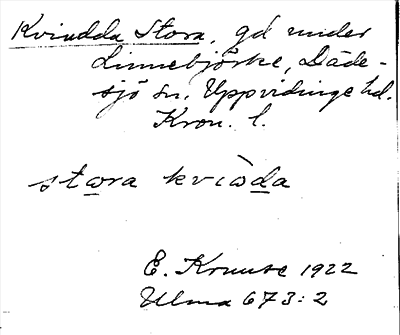 Kvindda Stora, gd under
Linnebjörke, Däde-
sjö sn. Uppvidinge hd.
Kron. l.
stora kvìnda
E. Kruuse 1922
Ulma 673:2